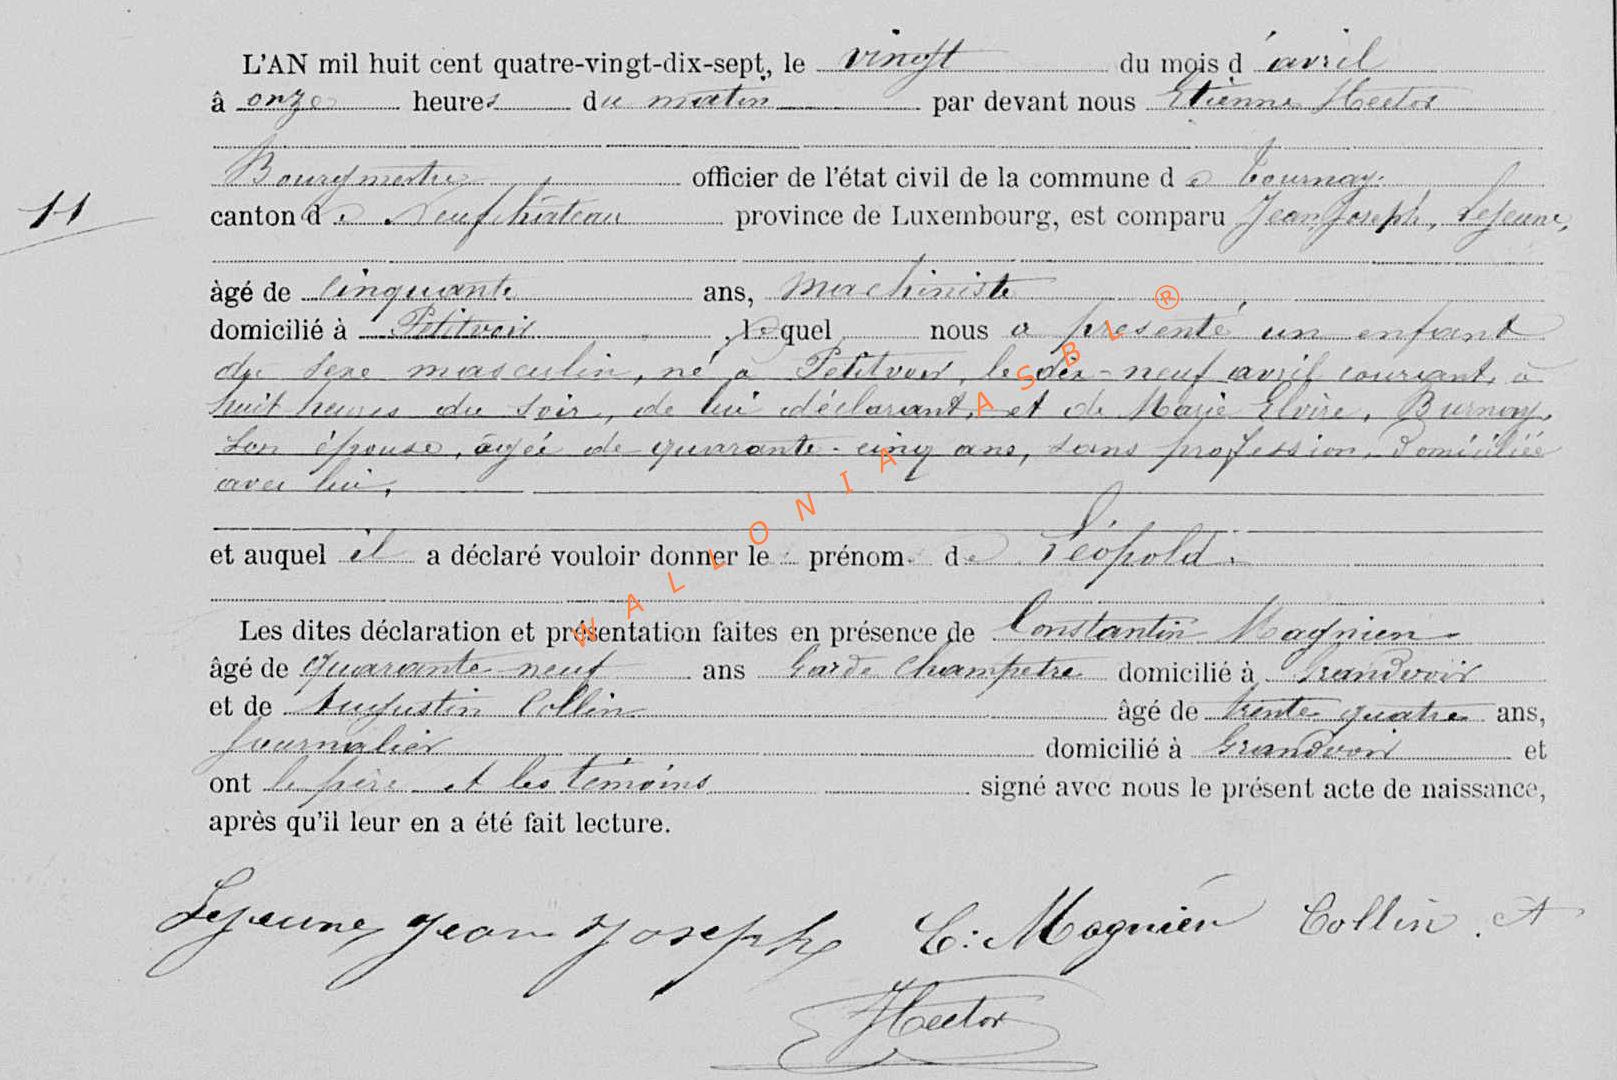 L'AN mil huit cent quatre-vingt-dix-sept, le vingt du mois d'avril
à onze heures du matin par devant nous Etienne Hector
Bourgmestre officier de l'état civil de la commune de Tournay.
11
canton de Neufchâteau province de Luxembourg, est comparu Jean Joseph, Lejeune,
âgé de cinquante ans, machiniste
domicilié à Petitvoir, lequel nous a presenté un enfant
du sexe masculin, né à Petitvoir, le dix-neuf avril courant, à
huit heures du soir, de lui déclarant, et de Marie Elvire, Burnay,
son épouse, âgée de quarante-cinq ans, sans profession, Domiciliée
avec lui,
et auquel il a déclaré vouloir donner le prénom de Léopold.
Les dites déclaration et présentation faites en présence de Constantin Magnien
âgé de quarante neuf ans Garde Champetre domicilié à Grandvoir
et de Augustin Collin âgé de trente quatre ans,
Journalier domicilié à Grandvoir et
ont le père et les témoins signé avec nous le présent acte de naissance,
après qu'il leur en a été fait lecture.
Lejeune Jean Joseph C: Magnien Collin. A
Hector
WALLONIA ASBL ®